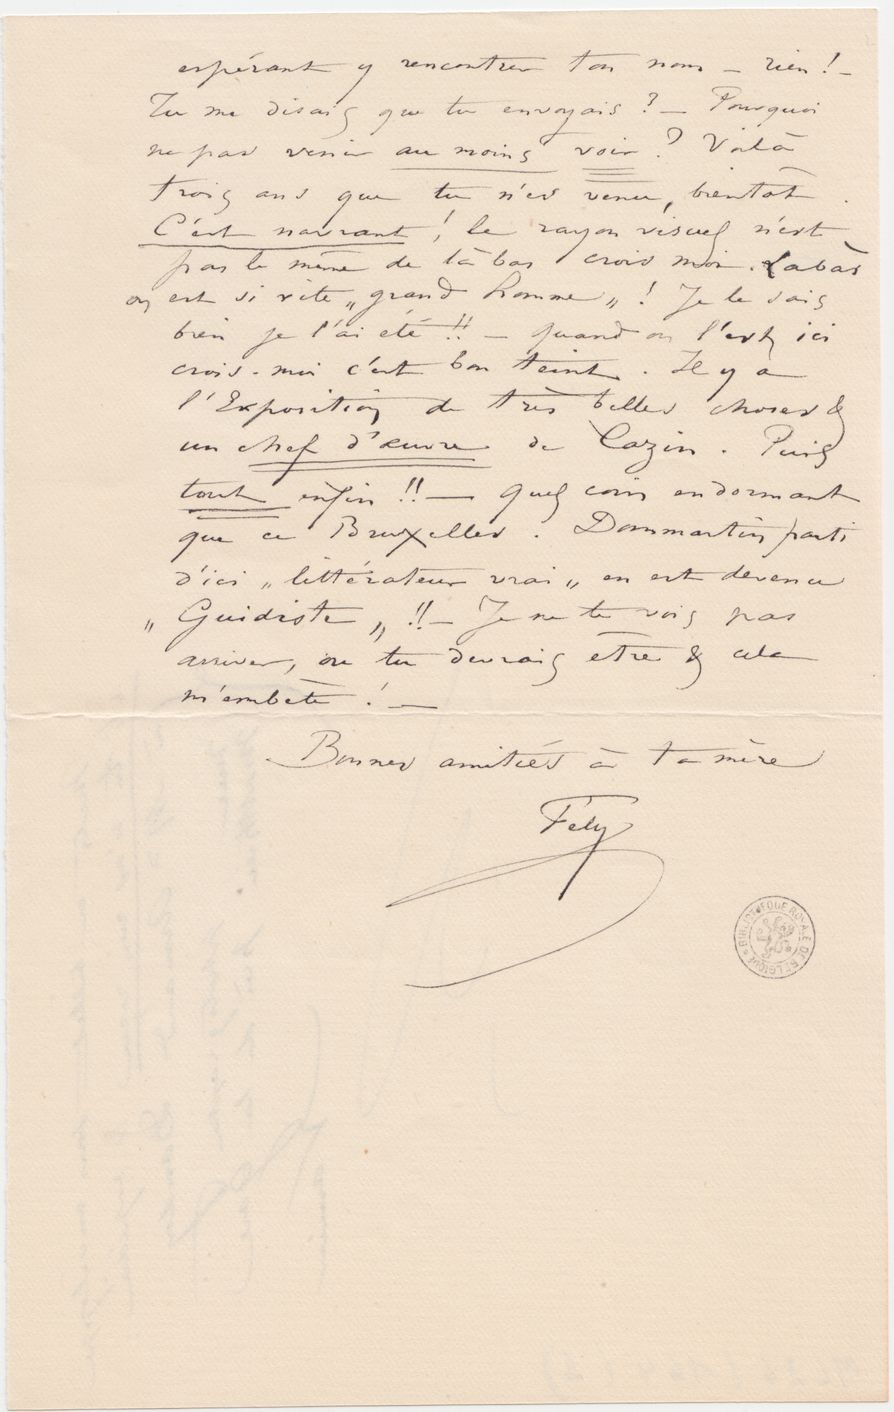 espérant y rencontrer ton nom – rien ! –
Tu me disais que tu envoyais ? – Pourquoi
ne pas venir au moins voir ? Voilà
trois ans que tu n'es venu, bientôt.
C'est navrant ! le rayon visuel n'est
pas le même de là bas crois moi. Labàs
on est si vite „grand homme„ ! Je le sais
bien je l'ai été !! – quand on l'est ici
crois-moi c'est bon teint. Il y a
l'Exposition de très belles choses &
un chef d'œuvre de Cazin. Puis
tout enfin !! – quel coin endormant
que ce Bruxelles. Dommartin parti
d'ici „littérateur vrai„ en est devenu
„Guidiste„ !! – Je ne te vois pas
arriver, où tu devrais être & cela
m'embête ! –
Bonnes amitiés à ta mère
Fély
BIBLIOTHEQUE ROYALE DE BELGIQUE